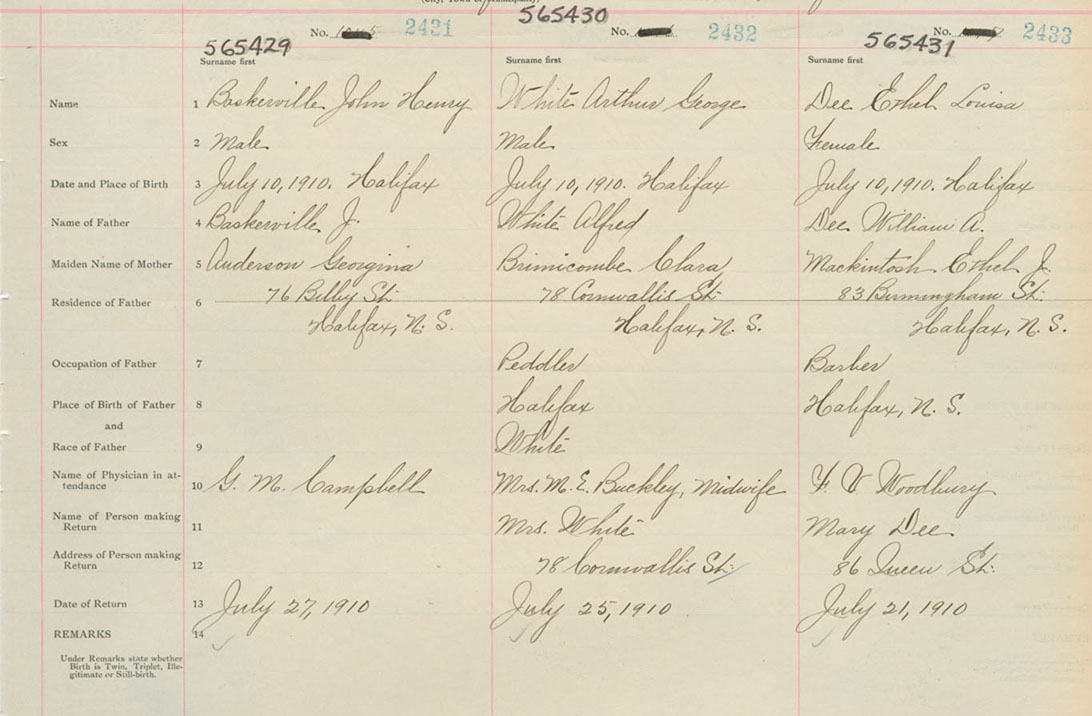 (City, Town or Municipality)
565429 No. 2431 565430 No. 2432 565431 No. 2433
Surname first Surname first Surname first
Name 1 Baskerville John Henry White Arthur George Dee Ethel Louisa
Sex 2 Male Male Female
Date and Place of Birth 3 July 10, 1910. Halifax July 10, 1910. Halifax July 10, 1910. Halifax
Name of Father 4 Baskerville J. White Alfred Dee William A.
Maiden Name of Mother 5 Anderson Georgina Brimicombe Clara Mackintosh Ethel J.
Residence of Father 6 76 Bilby St. 78 Cornwallis St. 83 Birmingham St.
Halifax, N. S. Halifax, N. S. Halifax, N. S.
Occupation of Father 7 Peddler Barber
Place of Birth of Father 8 Halifax Halifax, N. S.
and
Race of Father 9 White
Name of Physician in at-
tendance 10 G. M. Campbell Mrs. M. E. Buckley, Midwife F. V Woodbury
Name of Person making
Return 11 Mrs. White Mary Dee
Address of Person making
Return 12 78 Cornwallis St. 86 Queen St.
Date of Return 13 July 27, 1910 July 25, 1910 July 21, 1910
REMARKS 14
Under Remarks state whether
Birth is Twin, Triplet, Ille-
gitimate or Still-birth.